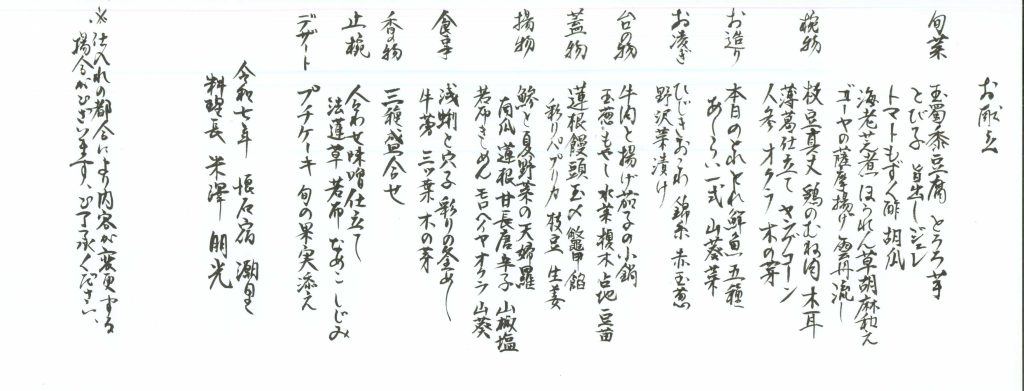 お献立
旬菜 玉蜀黍豆腐 とろろ芋
とび子 旨出しジュレ
トマトもずく酢 胡瓜
海老芝煮 ほうれん草胡麻和え
ゴーヤの薩摩揚げ 雲丹流し
椀物 枝豆真丈 鶏のむね肉 木耳
薄葛仕立て ヤングコーン
人参 オクラ 木の芽
お造り 本日のとれとれ鮮魚五種
あしらい一式 山葵菜
お凌ぎ ひじきおこわ 錦糸 赤玉葱
野沢菜漬け
台の物 牛肉と揚げ茄子の小鍋
玉葱 もやし 水菜 榎木 占地 豆苗
蓋物 蓮根饅頭 玉〆 鼈甲餡
彩りパプリカ 枝豆 生姜
揚物 鱧と夏野菜の天婦羅
南瓜 蓮根 甘長唐辛子 山椒塩
食事 浅蜊と穴子 彩りの釜めし
牛蒡 三ツ葉 木の芽
香の物 三種盛合せ
止椀 合わせ味噌仕立て
法蓮草 若布 なめこ しじみ
デザート プチケーキ 旬の果実添え
令和七年
料理長 米澤 朋光
※仕入れの都合により内容が変更する
場合がございます、ご了承ください、